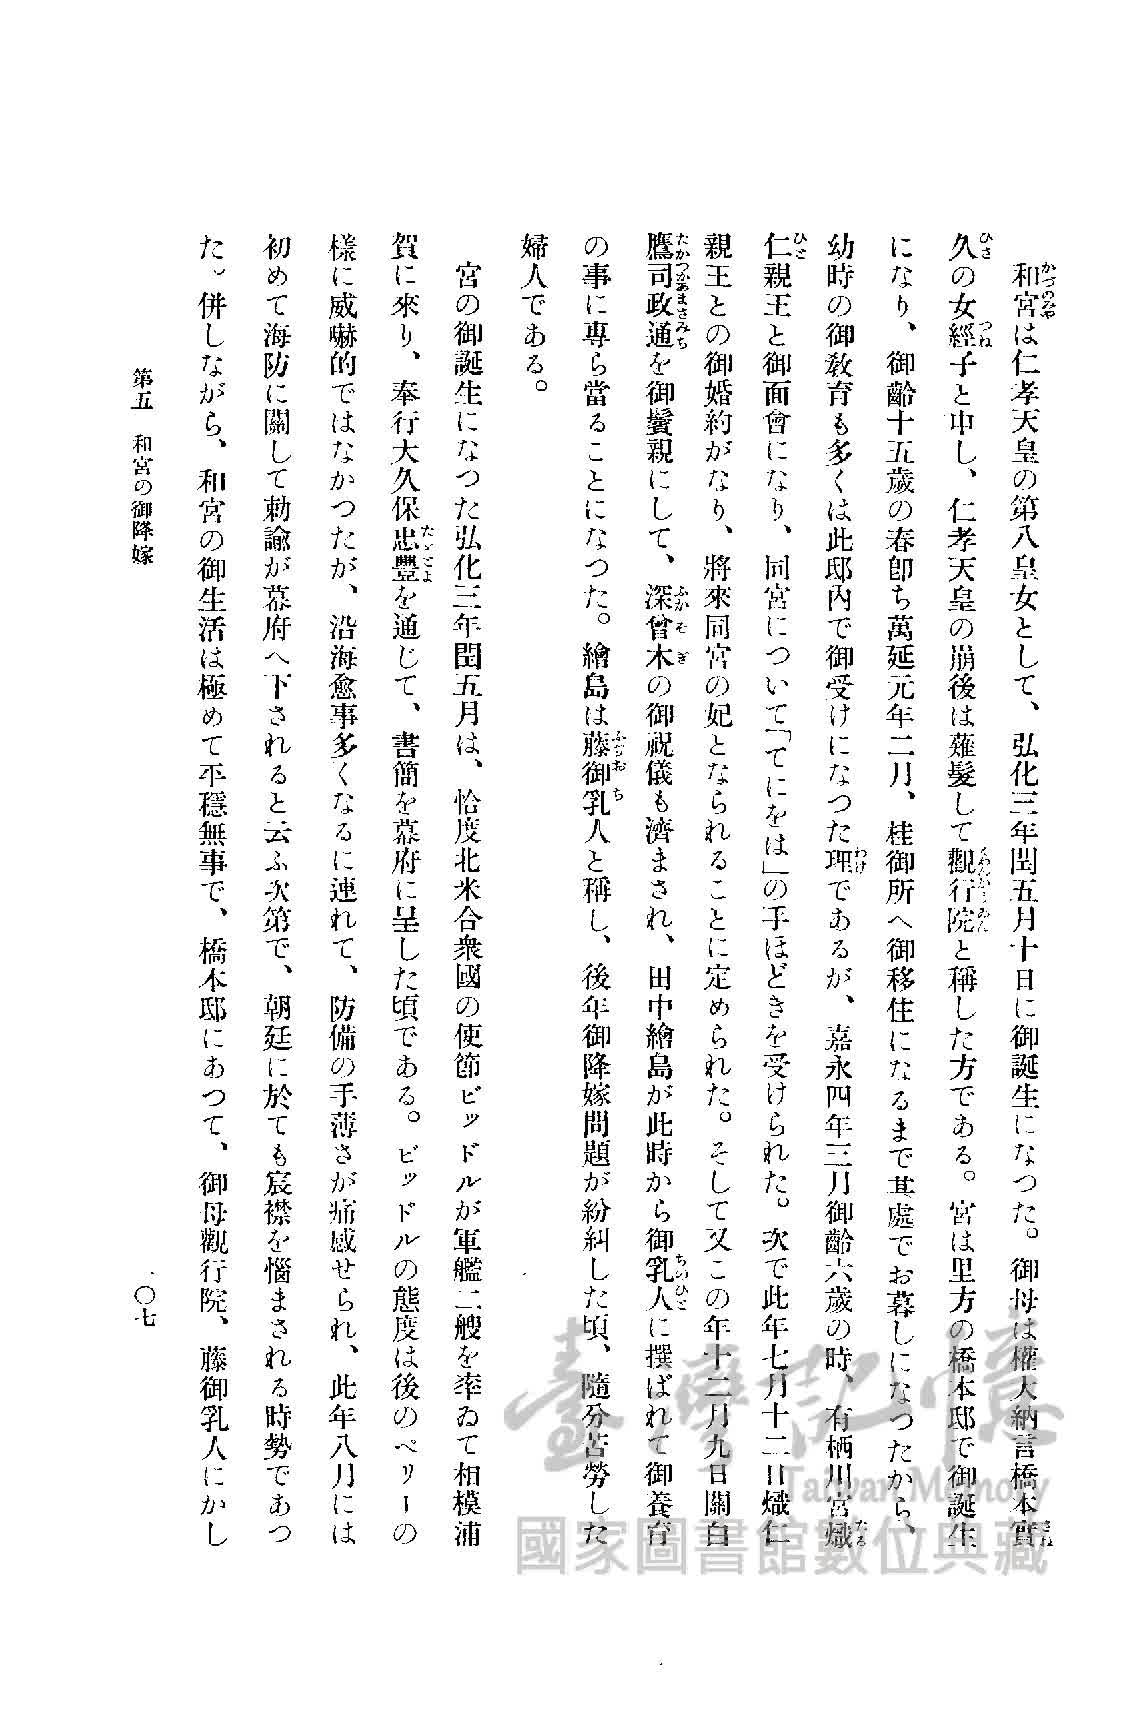 和宮は仁孝天皇の第八皇女として、弘化三年閏五月十日に御誕生になつた。御母は權大納言橋本實
久の女經子と申し、仁孝天皇の崩後は薙髮して觀行院と稱した方である。宮は里方の橋本邸で御誕生
になり、御齡十五歲の春卽ち萬延元年二月、桂御所へ御移住になるまで其處でお暮しになつたから、
幼時の御敎育も多くは此邸內で御受けになつた理であるが、嘉永四年三月御齡六歲の時、有栖川宮熾
仁親王と御面會になり、同宮について「てにをは」の手ほどきを受けられた。次で此年七月十二日熾仁
親王との御婚約がなり、將來同宮の妃となられることに定められた。そして又この年十二月九日關白
鷹司政通を御鬢親にして、深曾木の御祝儀も濟まされ、田中繪島が此時から御乳人に撰ばれて御養育
の事に專ら當ることになつた。繪島は藤御乳人と稱し、後年御降嫁問題が紛糾した頃、隨分苦勞した
婦人である。
宮の御誕生になつた弘化三年閏五月は、恰度北米合衆國の使節ビッドルが軍艦二艘を率ゐて相模浦
賀に來り、奉行大久保忠豐を通じて、書簡を幕府に呈した頃である。ビッドルの態度は後のペリーの
樣に威嚇的ではなかつたが、沿海愈事多くなるに連れて、防備の手薄さが痛感せられ、此年八月には
初めて海防に關して勅諭が幕府へ下されると云ふ次第で、朝廷に於ても宸襟を惱まされる時勢であつ
た。併しながら、和宮の御生活は極めて平穩無事で、橋本邸にあつて、御母觀行院、藤御乳人にかし
第五 和宮の御降嫁
一〇七
臺灣記憶
Taiwan Memory
國家圖書館數位典藏